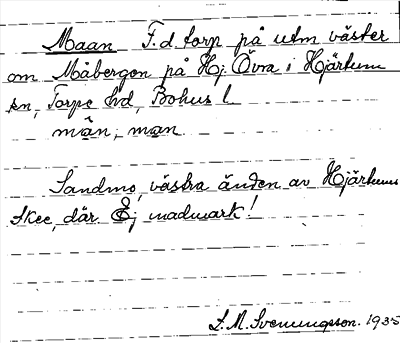 Maan F.d torp på utm väster
om Måbergen på Hj. Övra i Hjärtum
sn, Torpe hd, Bohus l
mån, man
Sandmo, västra änden av Hjärtums
skee, där. Ej madmark!
S.M. Svenungsson. 1935